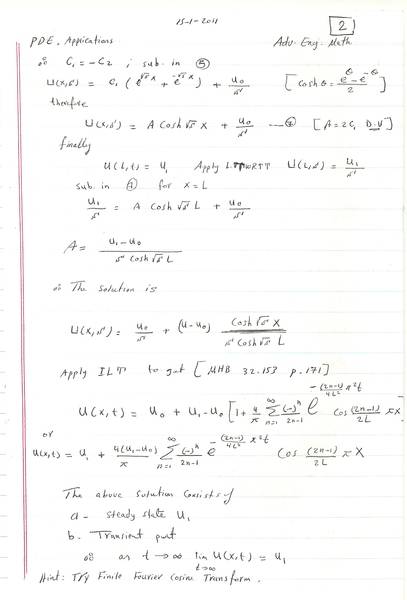 15-1-2011
2
PDE. Applications
Adv. Eng. Math
∴ C₁ = -C₂ ; sub. in ⑤
U(x,s) = C₁ (e^{√s x} + e^{-√s x}) + u₀/s [cosh θ = (e^θ - e^{-θ})/2]
therefore
U(x,s) = A Cosh √s x + u₀/s —⑦ [A = 2C₁ D.V]
finally
u(L,t) = u₁ Apply LT WRTT U(L,s) = u₁/s
sub. in ⑦ for x = L
u₁/s = A Cosh √s L + u₀/s
A = (u₁ - u₀)/(s Cosh √s L)
∴ The solution is
U(x,s) = u₀/s + (u - u₀) Cosh √s x/(s Cosh √s L)
Apply ILT to get [MHB 32.153 p.171]
U(x,t) = u₀ + u₁ - u₀ [1 + 4/π ∑_{n=1}^{∞} (-)^n/(2n-1) e^{-(2n-1)/(4L²) π² t} Cos (2n-1)/(2L) πx
or
U(x,t) = u₁ + 4(u₁-u₀)/π ∑_{n=1}^{∞} (-)^n/(2n-1) e^{-(2n-1)/(4L²) π² t} Cos (2n-1)/(2L) πx
The above solution consists of
a - steady state u₁
b. Transient part
∴ as t → ∞ lim_{t→∞} U(x,t) = u₁
Hint: Try Finite Fourier Cosine Transform.